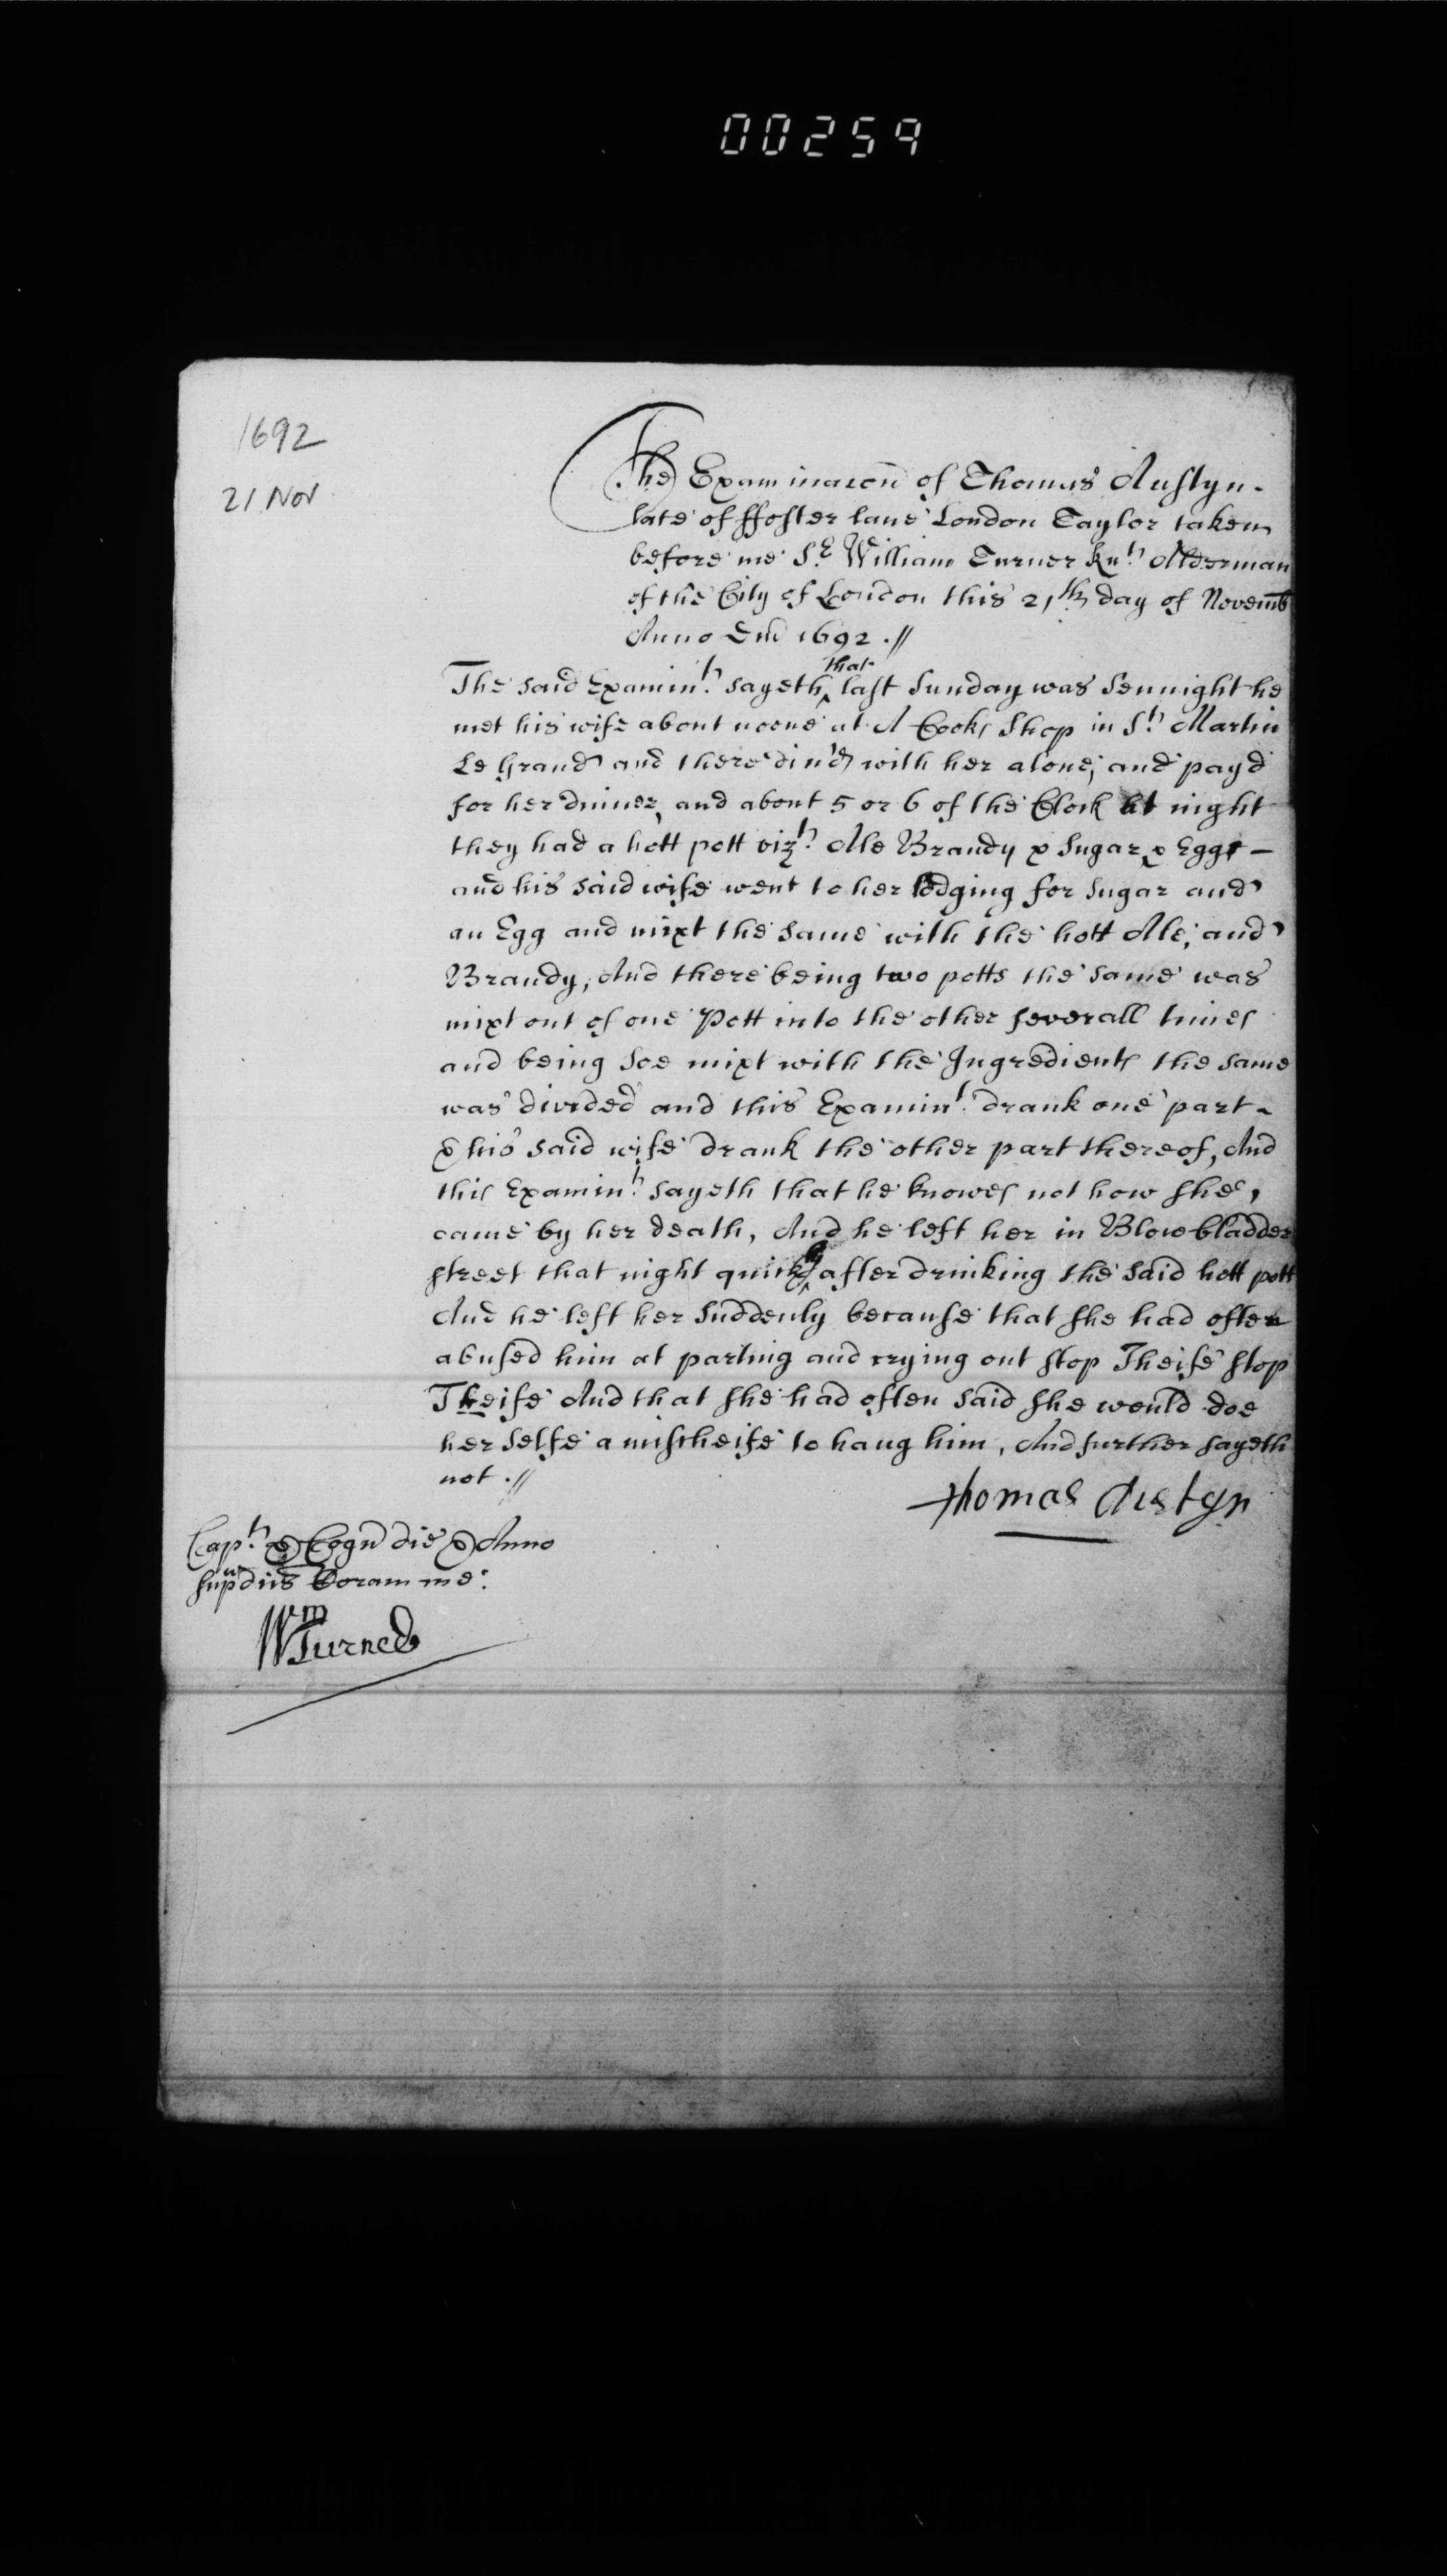 00259
1692
21 Nov
The Examinacon of Thomas Austyn
late of ffoster lane London Taylor taken
before me Sr William Turner Knt Alderman
of the City of London this 21th day of Novemb
Anno Dni 1692 .//
The said Examint sayeth that last Sunday was Sennight he
met his wife about noone at A Cooks Shop in St Martin
Le Grand and there din'd with her alone, and payd
for her dinner, and about 5 or 6 of the Clock at night
they had a hott pott vizt Ale Brandy & Sugar & Eggs -
and his said wife went to her lodging for Sugar and
an Egg and mixt the same with the hott Ale, and
Brandy, And there being two potts the same was
mixt out of one Pott into the other severall times
and being Soe mixt with the Ingredients the same
was divided and this Examint drank one part -
& his said wife drank the other part thereof, And
this Examint sayeth that he knowes not how she,
came by her death, And he left her in Blowbladder
street that night quickly after drinking the said hott pott
And he left her Suddenly because that she had often
abused him at parting and crying out stop Theife stop
Theife And that she had often said she would doe
her Selfe a mischeife to hang him, And further sayeth
not .//
Thomas Austyn
Capt & Cogn die & Anno
supdict Coram me:
Wm Turner